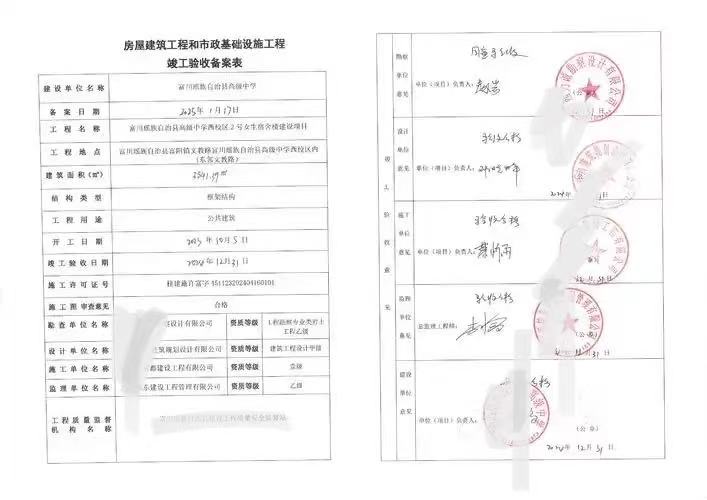 房屋建筑工程和市政基础设施工程
竣工验收备案表
建设单位名称 富川瑶族自治县高级中学
备案日期 2025年1月17日
工程名称 富川瑶族自治县高级中学西校区2号女生宿舍楼建设项目
工程地点 富川瑶族自治县富阳镇文教路富川瑶族自治县高级中学西校区内
(东邻文教路)
建筑面积(㎡)
结构类型 框架结构
工程用途 公共建筑
开工日期 2023年10月5日
竣工验收日期 2024年12月31日
施工许可证号 桂建施许富字 451123202404160101
施工图审查意见 合格
勘查单位名称 设计有限公司 资质等级 工程勘察专业类岩土
工程乙级
设计单位名称 建筑规划设计有限公司 资质等级 建筑工程设计甲级
施工单位名称 都建设工程有限公司 资质等级 壹级
监理单位名称 东建设工程管理有限公司 资质等级 乙级
工程质量监督
机构名称
竣工验收意见
勘察
单位
意见
同意验收
单位(项目)负责人:
(公章)
设计
单位
意见
验收合格
单位(项目)负责人:
施工
单位
意见
验收合格
单位(项目)负责人:
监理
单位
意见
验收合格
总监理工程师:
(公章)
建设
单位
意见
合格
单位(项目)负责人:
(公章)
2024年12月31日